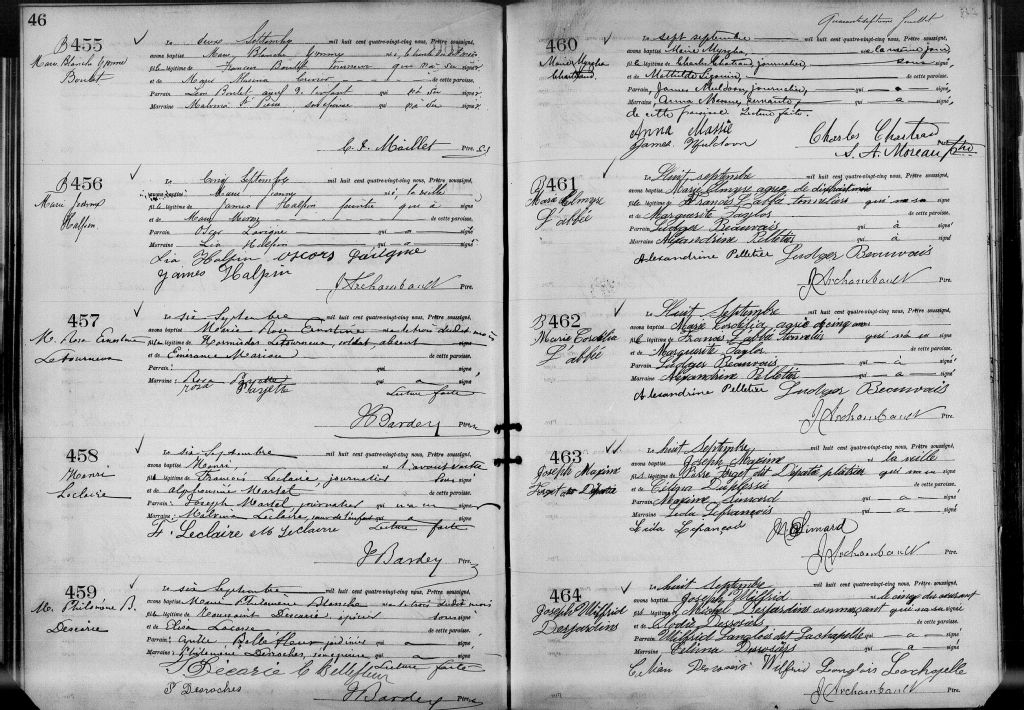 46
B 455
Marie Blanche Yvonne
Boulet
Le deux Septembre mil huit cent quatre-vingt-cinq nous, Prêtre soussigné,
avons baptisé Marie Blanche Yvonne
fille légitime de Boulet qui n'a su signer
et de Marie de cette paroisse.
Parrain Léon Boulet qui n'a su signé
Marraine Malvina St Pierre son épouse qui n'a su signé
C. J. Maillet Ptre.
B 456
Marie Jeanne
Halpin
Le Cinq Septembre mil huit cent quatre-vingt-cinq nous, Prêtre soussigné,
avons baptisé Marie Jeanne née la veille
fille légitime de James Halpin peintre qui a signé
et de Mary de cette paroisse.
Parrain Oscar Lavigne qui a signé
Marraine Lia Halpin qui a signé
Lia Halpin Oscar Lavigne
James Halpin
J Archambault Ptre.
457
M. Rose Ernestine
Letourneux
Le six Septembre mil huit cent quatre-vingt-cinq nous, Prêtre soussigné,
avons baptisé Marie Rose Ernestine née le trois dudit mois
fille légitime de Hormisdas Letourneux, soldat, absent signé
et de Emérance de cette paroisse.
Parrain: qui signé
Marraine: Rosa Payette qui a signé
rosa Payette Lecture faite
J Bardey Ptre.
458
Henri
Leclaire
Le six Septembre mil huit cent quatre-vingt-cinq nous, Prêtre soussigné,
avons baptisé Henri, né l'avant veille
fils légitime de François Leclaire, journalier signé
et de Alphonsine Martel de cette paroisse.
Parrain: Joseph Martel journalier qui n'a su signé
Marraine: Malvina Leclaire, qui a signé
F. Leclaire M Leclaire Lecture faite
J Bardey Ptre.
459
M. Philomène B.
Décarie
Le six Septembre mil huit cent quatre-vingt-cinq nous, Prêtre soussigné,
avons baptisé Marie Philomène Blanche née le trois dudit mois
fille légitime de Toussaint Décarie, épicier signé
et de Eliza de cette paroisse.
Parrain: Bellefleur qui a signé
Marraine: Philomène Desroches, qui a signé
T Décarie C Bellefleur Lecture faite
P Desroches
J Bardey Ptre.
Quarante septième feuillet
460
Marie Myrgha
Chartrand
Le sept septembre mil huit cent quatre-vingt-cinq nous, Prêtre soussigné,
avons baptisé Marie Myrgha, née le même jour
fille légitime de Charles Chartrand, journalier, signé
et de Mathilde de cette paroisse.
Parrain, James Muldoon, journalier, qui a signé
Marraine, Anna Massie, servante, qui a signé
de cette paroisse Lecture faite.
Anna Massie Charles Chartrand
James Muldoon S. A. Moreau Ptre
B 461
Marie Elmyre
L'abbé
Le Huit septembre mil huit cent quatre-vingt-cinq nous, Prêtre soussigné,
avons baptisé Marie Elmyre agée de dix
fille légitime de Francis L'abbé tonnelier qui n'a su signé
et de Marguerite Taylor de cette paroisse.
Parrain Ludger Beauvais qui a signé
Marraine Alexandrine Pelletier qui a signé
Alexandrine Pelletier Ludger Beauvais
J Archambault Ptre.
B 462
Marie Cordélia
L'abbé
Le Huit Septembre mil huit cent quatre-vingt-cinq nous, Prêtre soussigné,
avons baptisé Marie Cordélia agée de cinq ans
fille légitime de Francis L'abbé tonnelier qui n'a su signé
et de Marguerite Taylor de cette paroisse.
Parrain Ludger Beauvais qui a signé
Marraine Alexandrine Pelletier qui a signé
Alexandrine Pelletier Ludger Beauvais
J Archambault Ptre.
463
Joseph Maxime
Forget dit Dépatie
Le huit Septembre mil huit cent quatre-vingt-cinq nous, Prêtre soussigné,
avons baptisé Joseph Maxime né la veille
fils légitime de Pierre Forget dit Dépatie plâtrier qui n'a su signé
et de Célina Duplessis de cette paroisse.
Parrain Maxime Simard qui a signé
Marraine Leila Lefrançois qui a signé
Leila Lefrançois M Simard
J Archambault Ptre.
464
Joseph Wilfrid
Desjardins
Le huit Septembre mil huit cent quatre-vingt-cinq nous, Prêtre soussigné,
avons baptisé Joseph Wilfrid né le cinq du courant
fils légitime de Michel Desjardins commerçant qui n'a su signé
et de Elodie Desrosiers de cette paroisse.
Parrain Wilfrid Langlois dit Lachapelle qui a signé
Marraine Célina Desrosiers qui a signé
Célina Desrosiers Wilfrid Langlois Lachapelle
J Archambault Ptre.